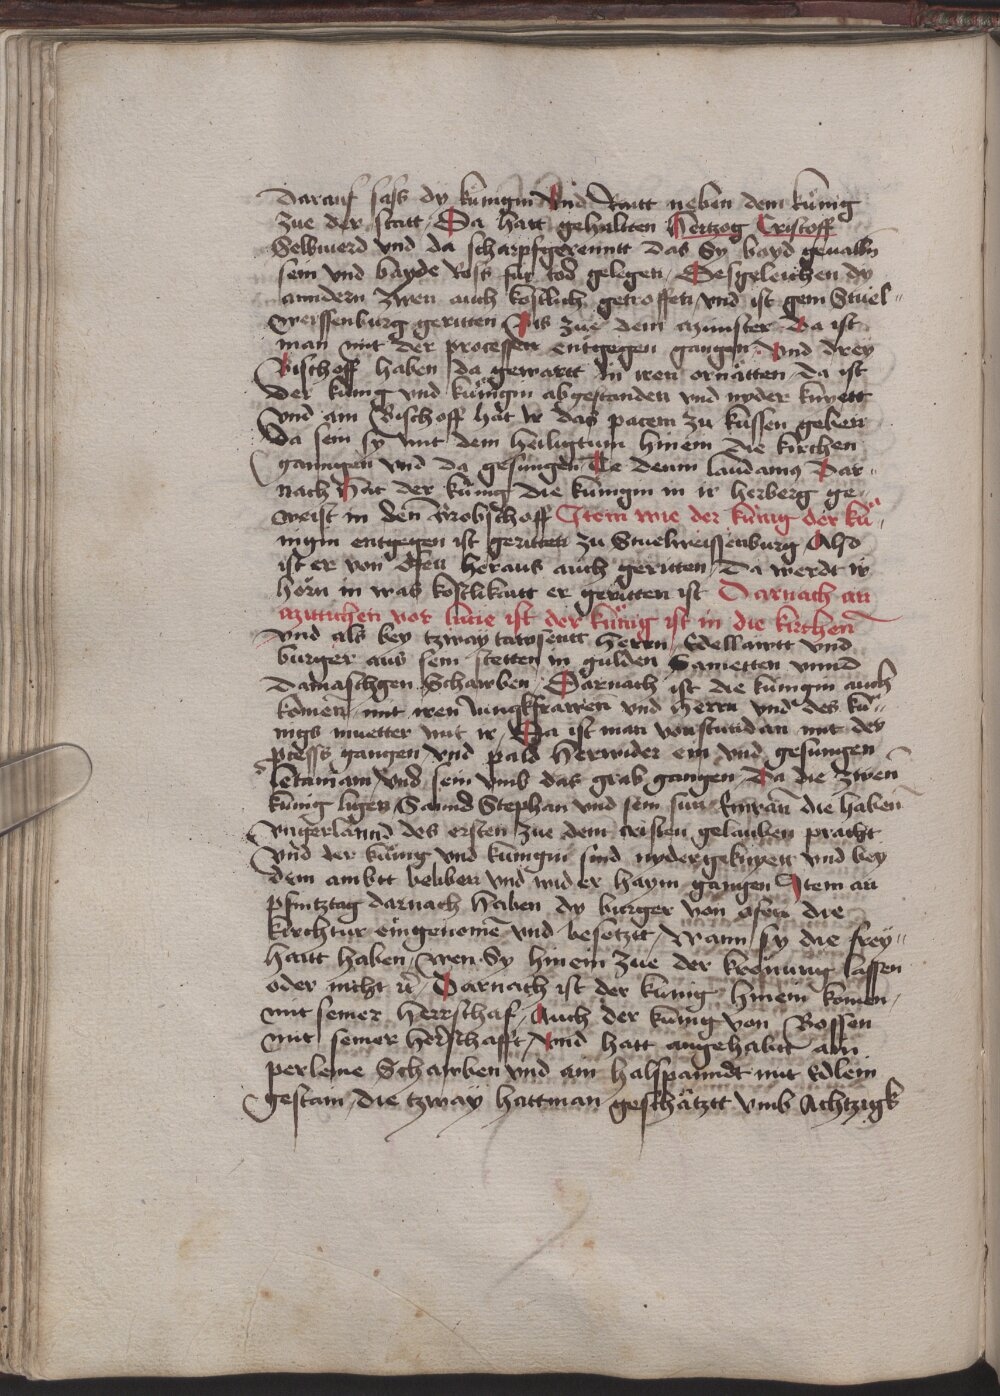 darauf sass dy kunigin Vnd Raitt neben dem kunig
zue der statt / Da hatt gehallten Hertzog Cristoff
Selbuierd vnd da scharpfgerenntt das Sy bayd geualln
sein vnd bayde Ross für tod gelegen / Desgeleichen dy
anndern zwen auch kostlich getroffen / vnd ist gein Stuel=
weissenburg geritten Bis zue dem munster Da ist
man mit der processen entgegen gangen Vnd drey
Bischoff haben da gewartt in iren ornätten / Da ist
der kunig vnd kunigin abgestanden vnd nyder knyett
vnd ain Bischoff hat ir das pacem zu kussen geben
Da sein sy mit dem heiligtum hinein die kirchen
ganngen vnd da gesungen Te deum laudamus Dar=
nach Hat der kunig die kunigin in ir herberg ge=
weist in den Brobschoff Item wie der kunig der ku=
nigin entgegen ist geritten zu Stuelweissenburg / Also
ist er von Ofen heraus auch geritten / Da werdt ir
horn in was kostlikaitt er geritten ist Darnach an
mittichen vor lucie ist der kunig ist in die kirchen
vnd als bey tzway tawsentt herrn / Edellawtt vnd
burger aus sein stetten in gulden Sametten vnnd
Damaschgen Schawben / Darnach ist die kunigin auch
komen / mit iren Jungkfrawen vnd herrn vnd des ku=
nigs muetter mit ir / Da ist man vonstundan mit des
process gangen / vnd pald herwider ein vnd gesungen
letaniam / vnd sein vmb das grab gangen / Da die zwen
kunig ligen / Sannd Stephan vnd sein sun Emran die haben
vngerlannd des ersten zue dem cristen gelauben pracht
vnd der kunig vnd kunigin sind nydergeknyett vnd bey
dem ambtt beliben vnd wider haym gangen Item an
pfintztag darnach haben dy burger von ofen die
kirchtur eingenomen vnd besetztt / Wann sy die frey=
haitt haben / wen Sy hinein zue der kronung lassen
oder nicht Darnach ist der kunig hinein komen /
mit seiner herrschaf / Auch der kunig von Bossen
mit seiner herschafft / Vnd hatt angehabtt ain
perleine Schawben vnd ain halspanndt mit Edlem
gestain / die tzway hattman geschätztt vmb Achtzigk